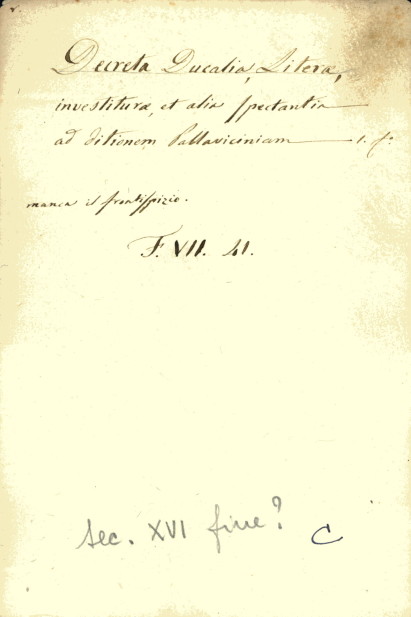 Decreta Ducalia, Literæ,
investituræ, et alia spectantia
ad ditionem Pallaviciniam — 1. f:
manca il frontispizio.
F. VII. 41.
sec. XVI fine? C